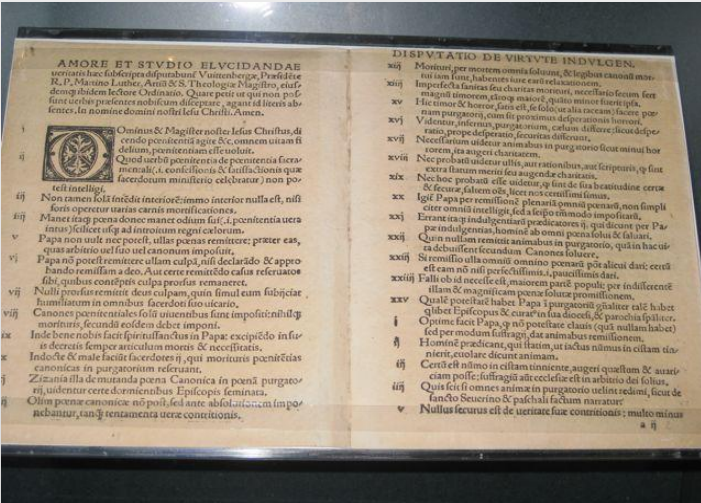 AMORE ET STVDIO ELVCIDANDAE
ueritatis hæc subscripta disputabunť Vuittenbergæ, Præsidēte
R. P. Martino Luther, Artiū & S. Theologiæ Magistro, eius-
demq́; ibidem lectore Ordinario. Quare petit ut qui non pos-
sunt uerbis præsentes nobiscum disceptare, agant id literis ab-
sentes. In nomine domini nostri Iesu Christi. Amen.
i DOminus & Magister noster Iesus Christus, di
cendo pœnitentiā agite &c, omnem uitam fi
delium, pœnitentiam esse uoluit.
ij Quod uerbū pœnitentia de pœnitentia sacra
mentali (.i. confessionis & satisfactionis quæ
sacerdotum ministerio celebratur) non po-
test intelligi.
iij Non tamen solā intēdit interiorē: immo interior nulla est, nisi
foris operetur uarias carnis mortificationes.
iiij Manet itaq́; pœna donec manet odium sui (.i. pœnitentia uera
intus) scilicet usq́; ad introitum regni cælorum.
v Papa non uult nec potest, ullas pœnas remittere: præter eas,
quas arbitrio uel suo uel canonum imposuit.
vj Papa nō potest remittere ullam culpā, nisi declarādo & appro
bando remissam a deo. Aut certe remittēdo casus reseruatos
sibi, quibus contēptis culpa prorsus remaneret.
vij Nulli prorsus remittit deus culpam, quin simul eum subijciat
humiliatum in omnibus sacerdoti suo uicario.
viij Canones pœnitentiales solū uiuentibus sunt impositi: nihilq́;
morituris, secundū eosdem debet imponi.
ix Inde bene nobis facit spiritussanctus in Papa: excipiēdo in su-
is decretis semper articulum mortis & necessitatis.
x Indocte & male faciūt sacerdotes ij, qui morituris pœnitētias
canonicas in purgatorium reseruant.
Zizania illa de mutanda pœna Canonica in pœnā purgato-
rij, uidentur certe dormientibus Episcopis seminata.
Olim pœnæ canonicæ nō post, sed ante absolutionem impo-
nebantur, tanq̄ tentamenta ueræ contritionis.
DISPVTATIO DE VIRTVTE INDVLGEN.
xiij Morituri, per mortem omnia soluunt, & legibus canonū mor-
tui iam sunt, habentes iure earū relaxationem.
xiiij Imperfecta sanitas seu charitas morituri, necessario secum fert
magnū timorem, tātoq́; maiorē, quāto minor fuerit ipsa.
xv Hic timor & horror, satis est, se solo (ut alia taceam) facere pœ-
nam purgatorij, cum sit proximus desperationis horrori.
xvj Videntur, infernus, purgatorium, cælum differre: sicut despe-
ratio, prope desperatio, securitas differunt.
xvij Necessarium uidetur animabus in purgatorio sicut minui hor
rorem, ita augeri charitatem.
xviij Nec probatū uidetur ullis, aut rationibus, aut scripturis, q̨ sint
extra statum meriti seu augendæ charitatis.
xix Nec hoc probatū esse uidetur, q̨ sint de sua beatitudine certæ
& securæ, saltem oēs, licet nos certissimi simus.
xx Igiť Papa per remissionē plenariā omniū pœnarū, non simpli
citer omniū intelligit, sed a seipso tm̄modo impositarū.
xxj Errant itaq́; indulgentiarū prædicatores ij, qui dicunt per Pa-
pæ indulgentias, hominē ab omni pœna solui & saluari.
xxij Quin nullam remittit animabus in purgatorio, quā in hac ui-
ta debuissent secundum Canones soluere.
xxiij Si remissio ulla omniū omnino pœnarū pōt alicui dari: certū
est eam nō nisi perfectissimis .i. paucissimis dari.
xxiiij Falli ob id necesse est, maiorem partē populi: per indifferentē
illam & magnificam pœnæ solutæ promissionem.
xxv Qualē potestatē habet Papa ī purgatoriū gn̄aliter talē habet
q̄libet Episcopus & curať in sua diocesi, & parochia spāliter.
j Optime facit Papa, q̨ nō potestate clauis (quā nullam habet)
sed per modum suffragij, dat animabus remissionem.
ij Hominē prædicant, qui statim, ut iactus nūmus in cistam tin-
nierit, euolare dicunt animam.
iij Certū est nūmo in cistam tinniente, augeri quæstum & auari-
ciam posse: suffragiū aūt ecclesiæ est in arbitrio dei solius.
iiij Quis scit si omnes animæ in purgatorio uelint redimi, sicut de
sancto Seuerino & paschali factum narratur.
v Nullus securus est de ueritate suæ contritionis: multo minus
a ij